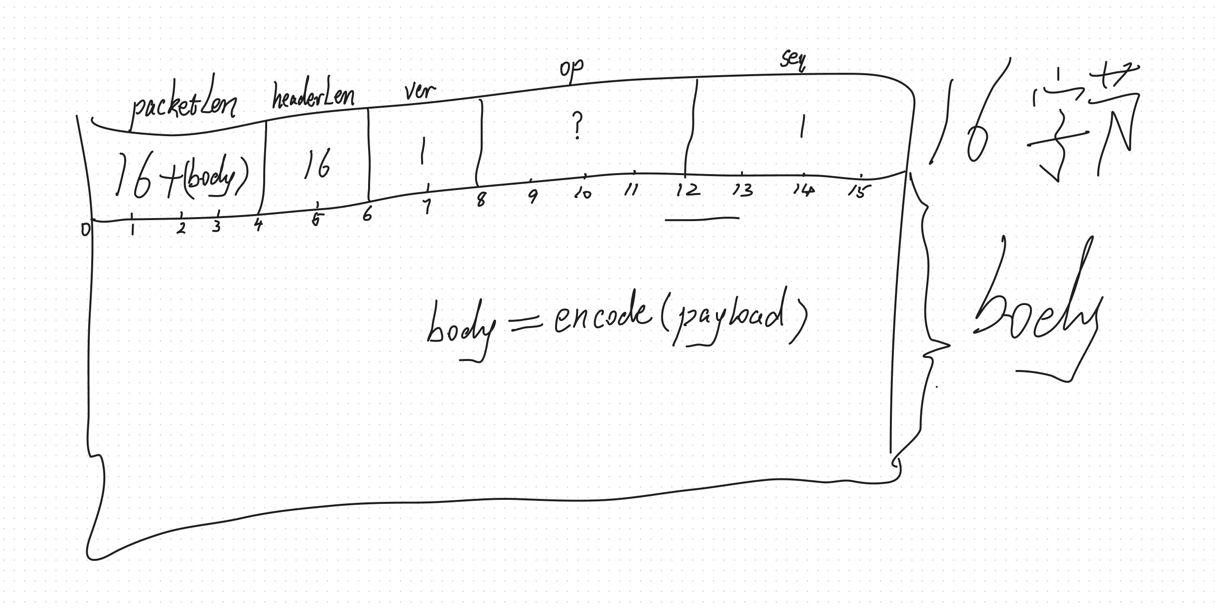 packetLen headerLen ver op seq
16+(body) 16 1 ? 1 16 字节
0 1 2 3 4 5 6 7 8 9 10 11 12 13 14 15
body = encode(payload) body